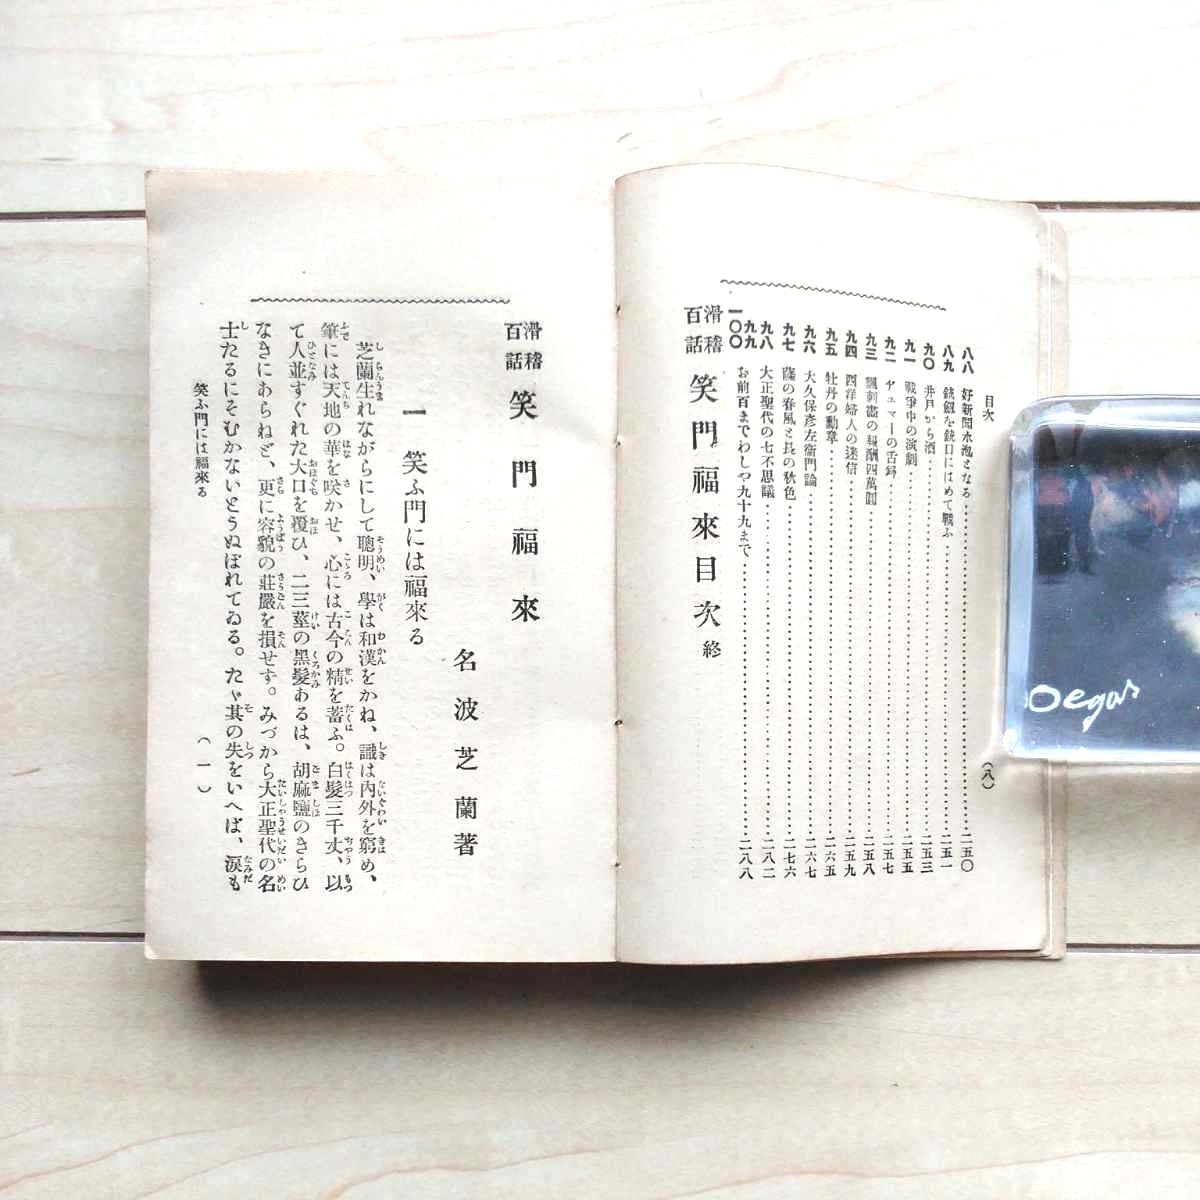 目次
八八 好新聞水泡となる 二五〇
八九 銃劍を銃口にはめて戰ふ 二五一
九〇 井戸から酒 二五三
九一 戰爭中の演劇 二五五
九二 ヤュマーの舌 二五七
九三 諷刺畫の報酬四萬圓 二五八
九四 西洋婦人の迷信 二五九
九五 牡丹の勳章 二六五
九六 大久保彦左衞門論 二六七
九七 薩の春風と長の秋色 二七六
九八 大正聖代の七不思議 二八二
九九
一〇〇 お前百までわしや九十九まで 二八八
滑稽百話 笑門福來目次 終
(八)
滑稽百話 笑門福來
名波芝蘭著
一 笑ふ門には福來る
芝蘭生れながらにして聰明、學は和漢をかね、識は內外を窮め、
筆には天地の華を咲かせ、心には古今の精を蓄ふ。白髮三千丈、以
て人並すぐれた大口を覆ひ、二三莖の黑髮あるは、胡麻鹽のきらひ
なきにあらねど、更に容貌の莊嚴を損せず。みづから大正聖代の名
士たるにそむかないとうぬぼれてゐる。たゞ其の失をいへば、淚も
笑ふ門には福來る
(一)
Degas